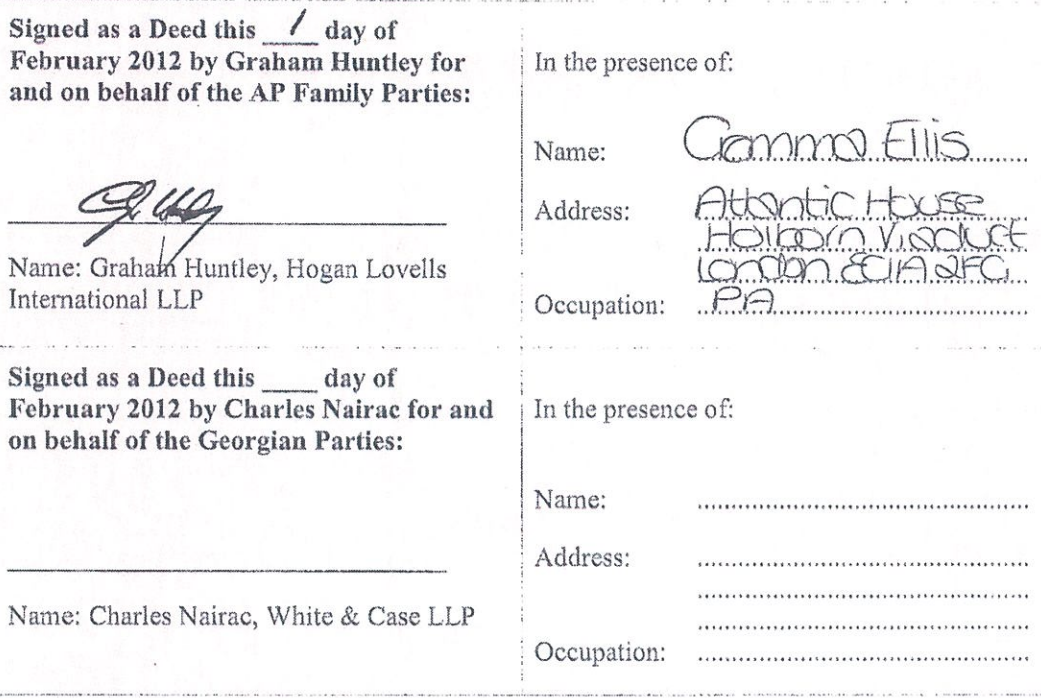 Signed as a Deed this 1 day of
February 2012 by Graham Huntley for
and on behalf of the AP Family Parties:
Name: Graham Huntley, Hogan Lovells
International LLP
In the presence of:
Name: Gemma Ellis
Address: Atlantic House
Holborn Viaduct
London EC1A 2FG
Occupation: PA
Signed as a Deed this ____ day of
February 2012 by Charles Nairac for and
on behalf of the Georgian Parties:
Name: Charles Nairac, White & Case LLP
In the presence of:
Name:
Address:
Occupation: